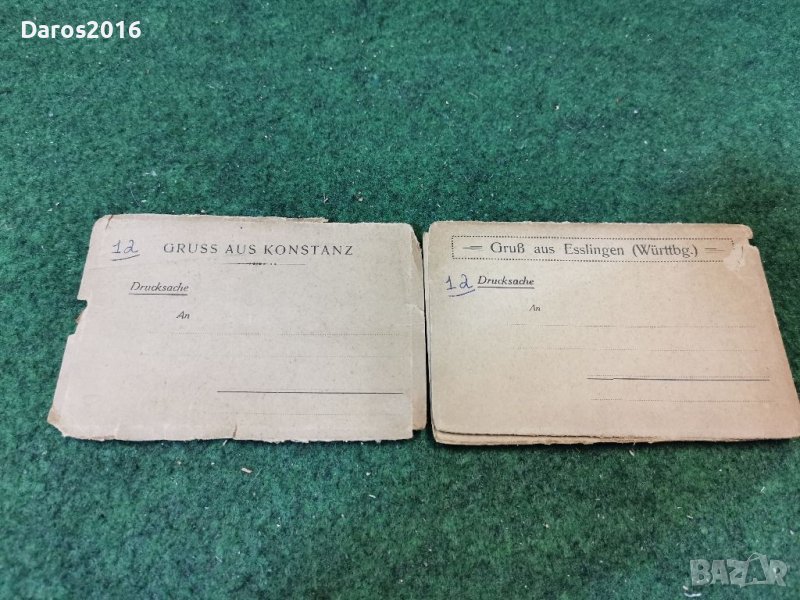 Daros2016
12 GRUSS AUS KONSTANZ
Drucksache
An
Gruß aus Esslingen (Württbg.)
12 Drucksache
An
BAZAR